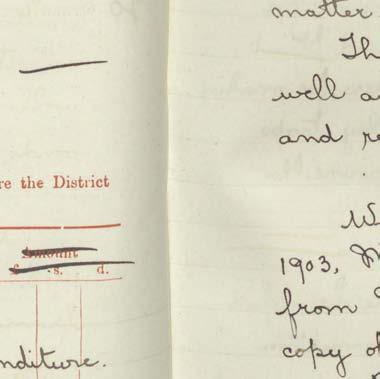 re the District
Amount
£ s. d.
nditure.
matter
Th
well a
and re
W
1903, M
from
copy of